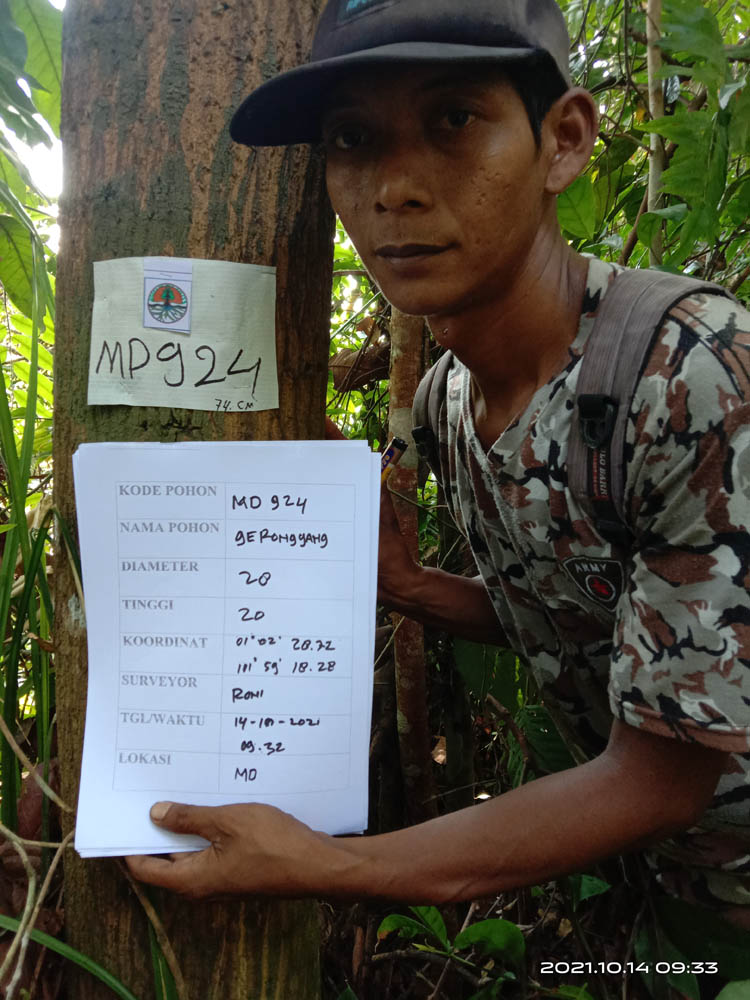 MD924
74. CM
KODE POHON MD 924
NAMA POHON gERONggANg
DIAMETER 28
TINGGI 20
KOORDINAT 01° 02' 28.22
101° 59' 18.28
SURVEYOR RONI
TGL/WAKTU 14-10-2021
09.32
LOKASI MD
ARMY
2021.10.14 09:33